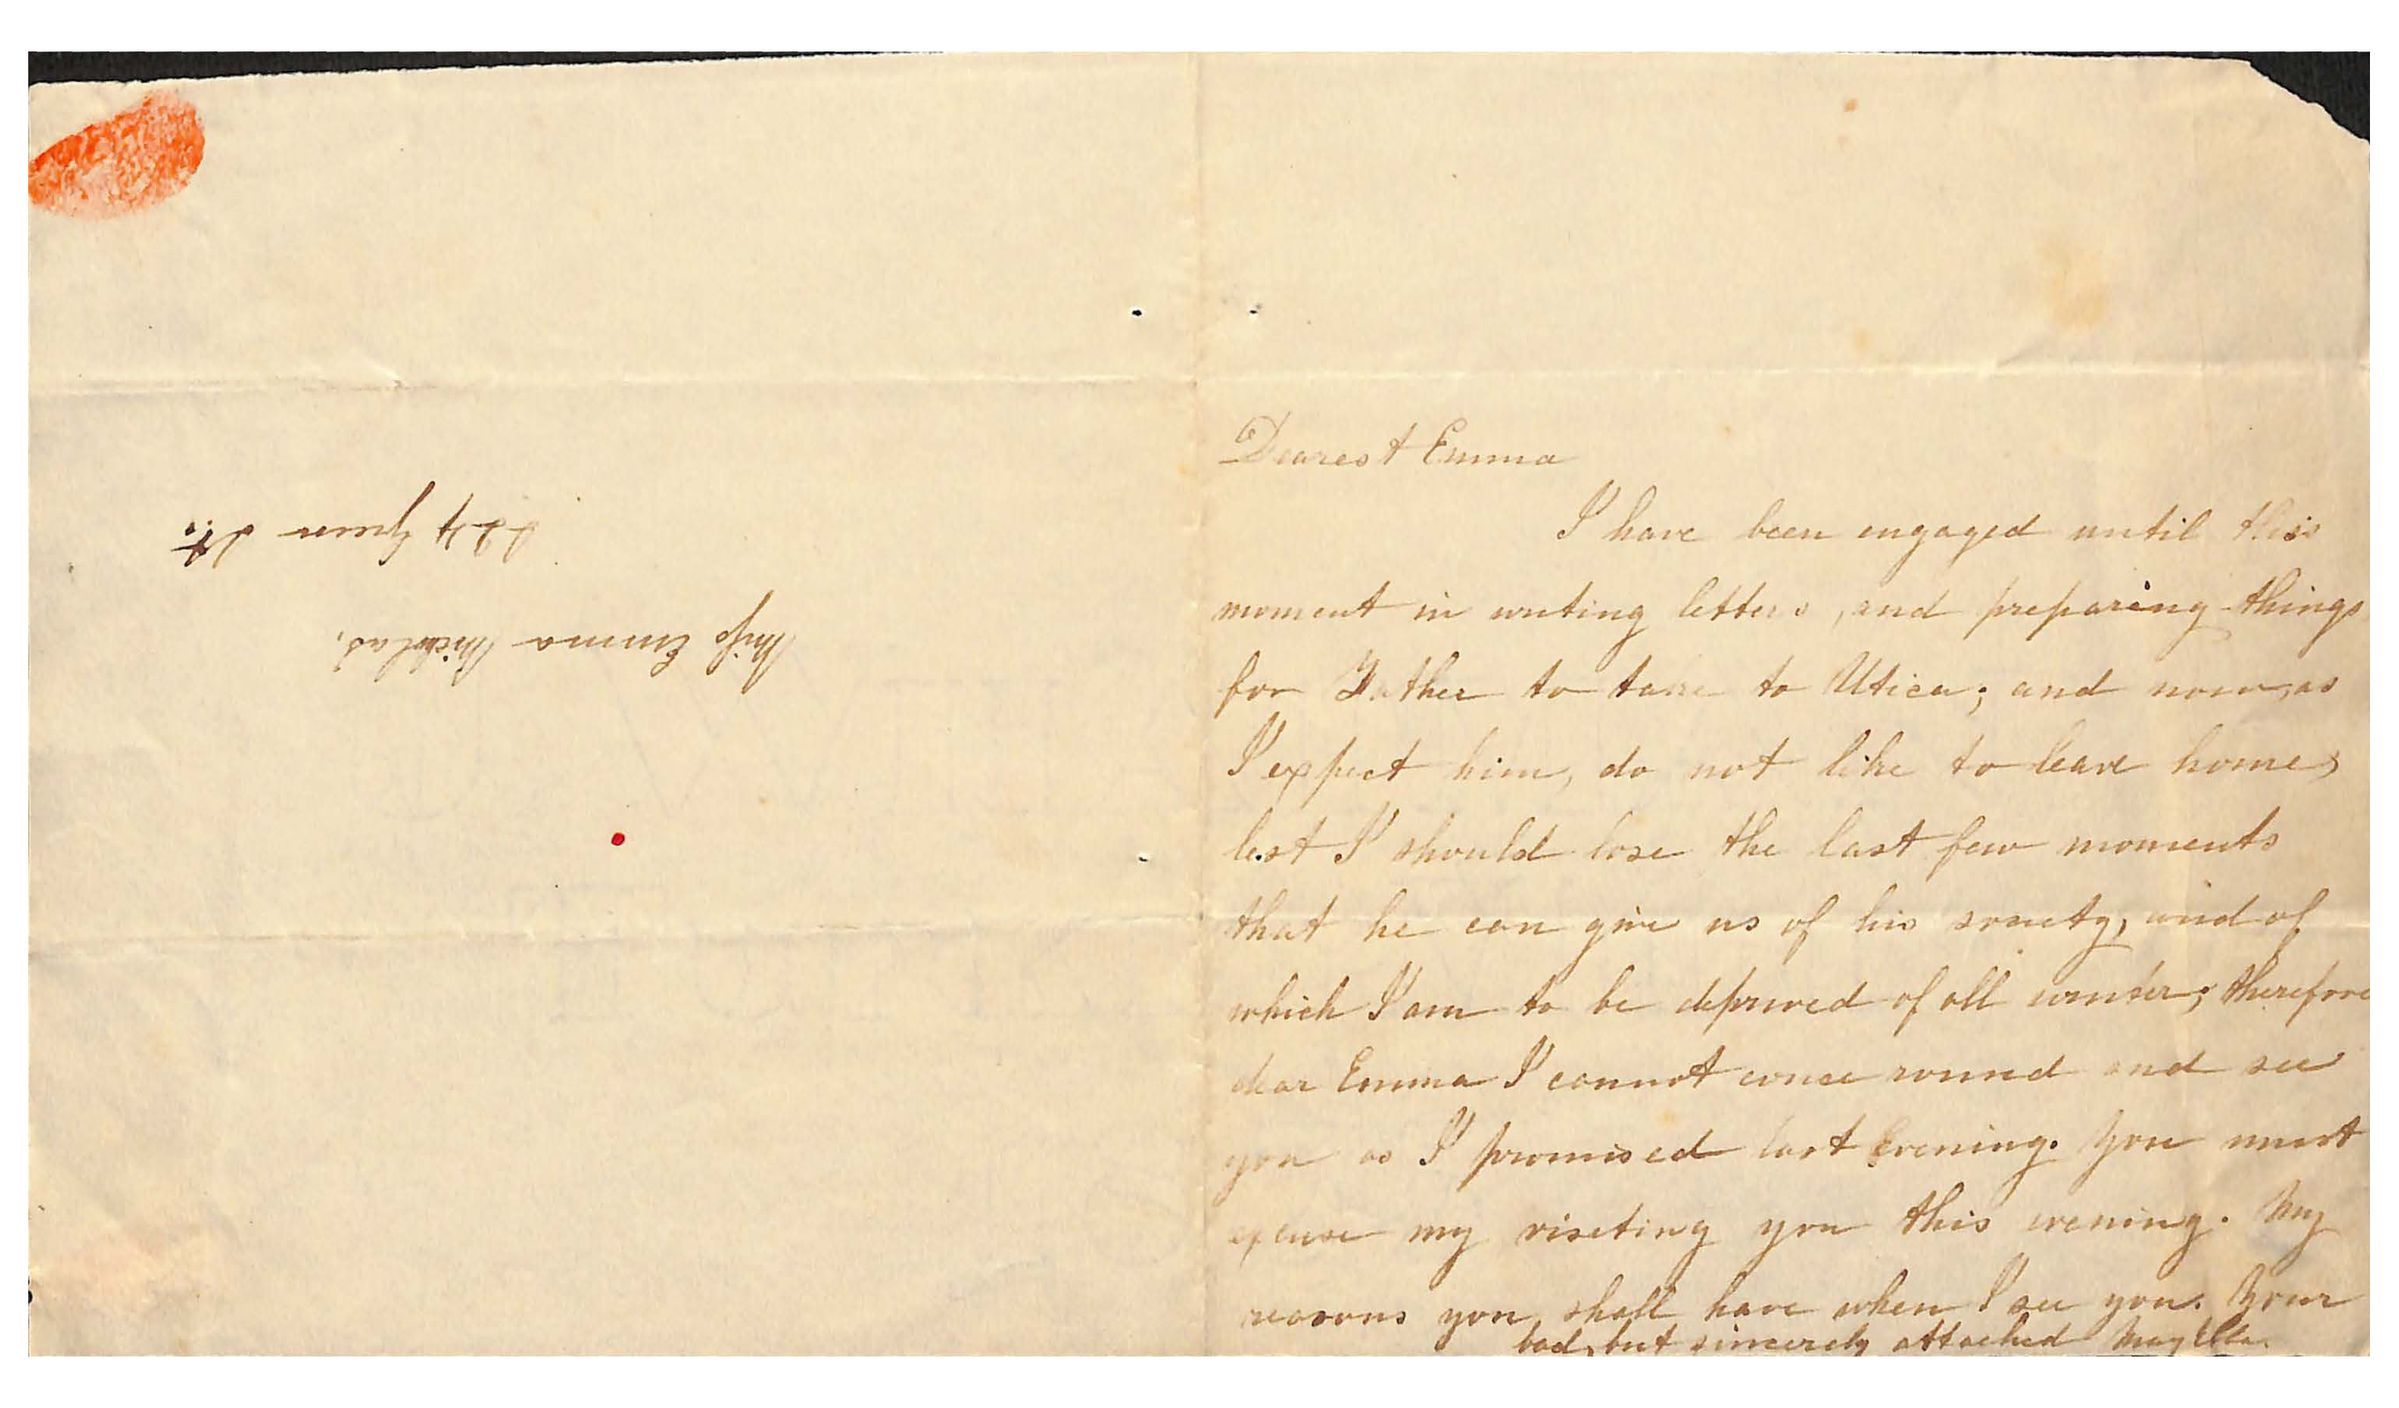 Miss Emma Nicholas,
224 Green St.
Dearest Emma
I have been engaged until this
moment in writing letters, and preparing things
for Father to take to Utica; and now, as
I expect him, do not like to leave home,
lest I should lose the last few moments
that he can give us of his society, and of
which I am to be deprived of all winter; therefore
dear Emma I cannot come round and see
you as I promised last Evening. You must
excuse my viseting you this evening. My
reasons you shall have when I see you. Your
bad, but sincerely attached